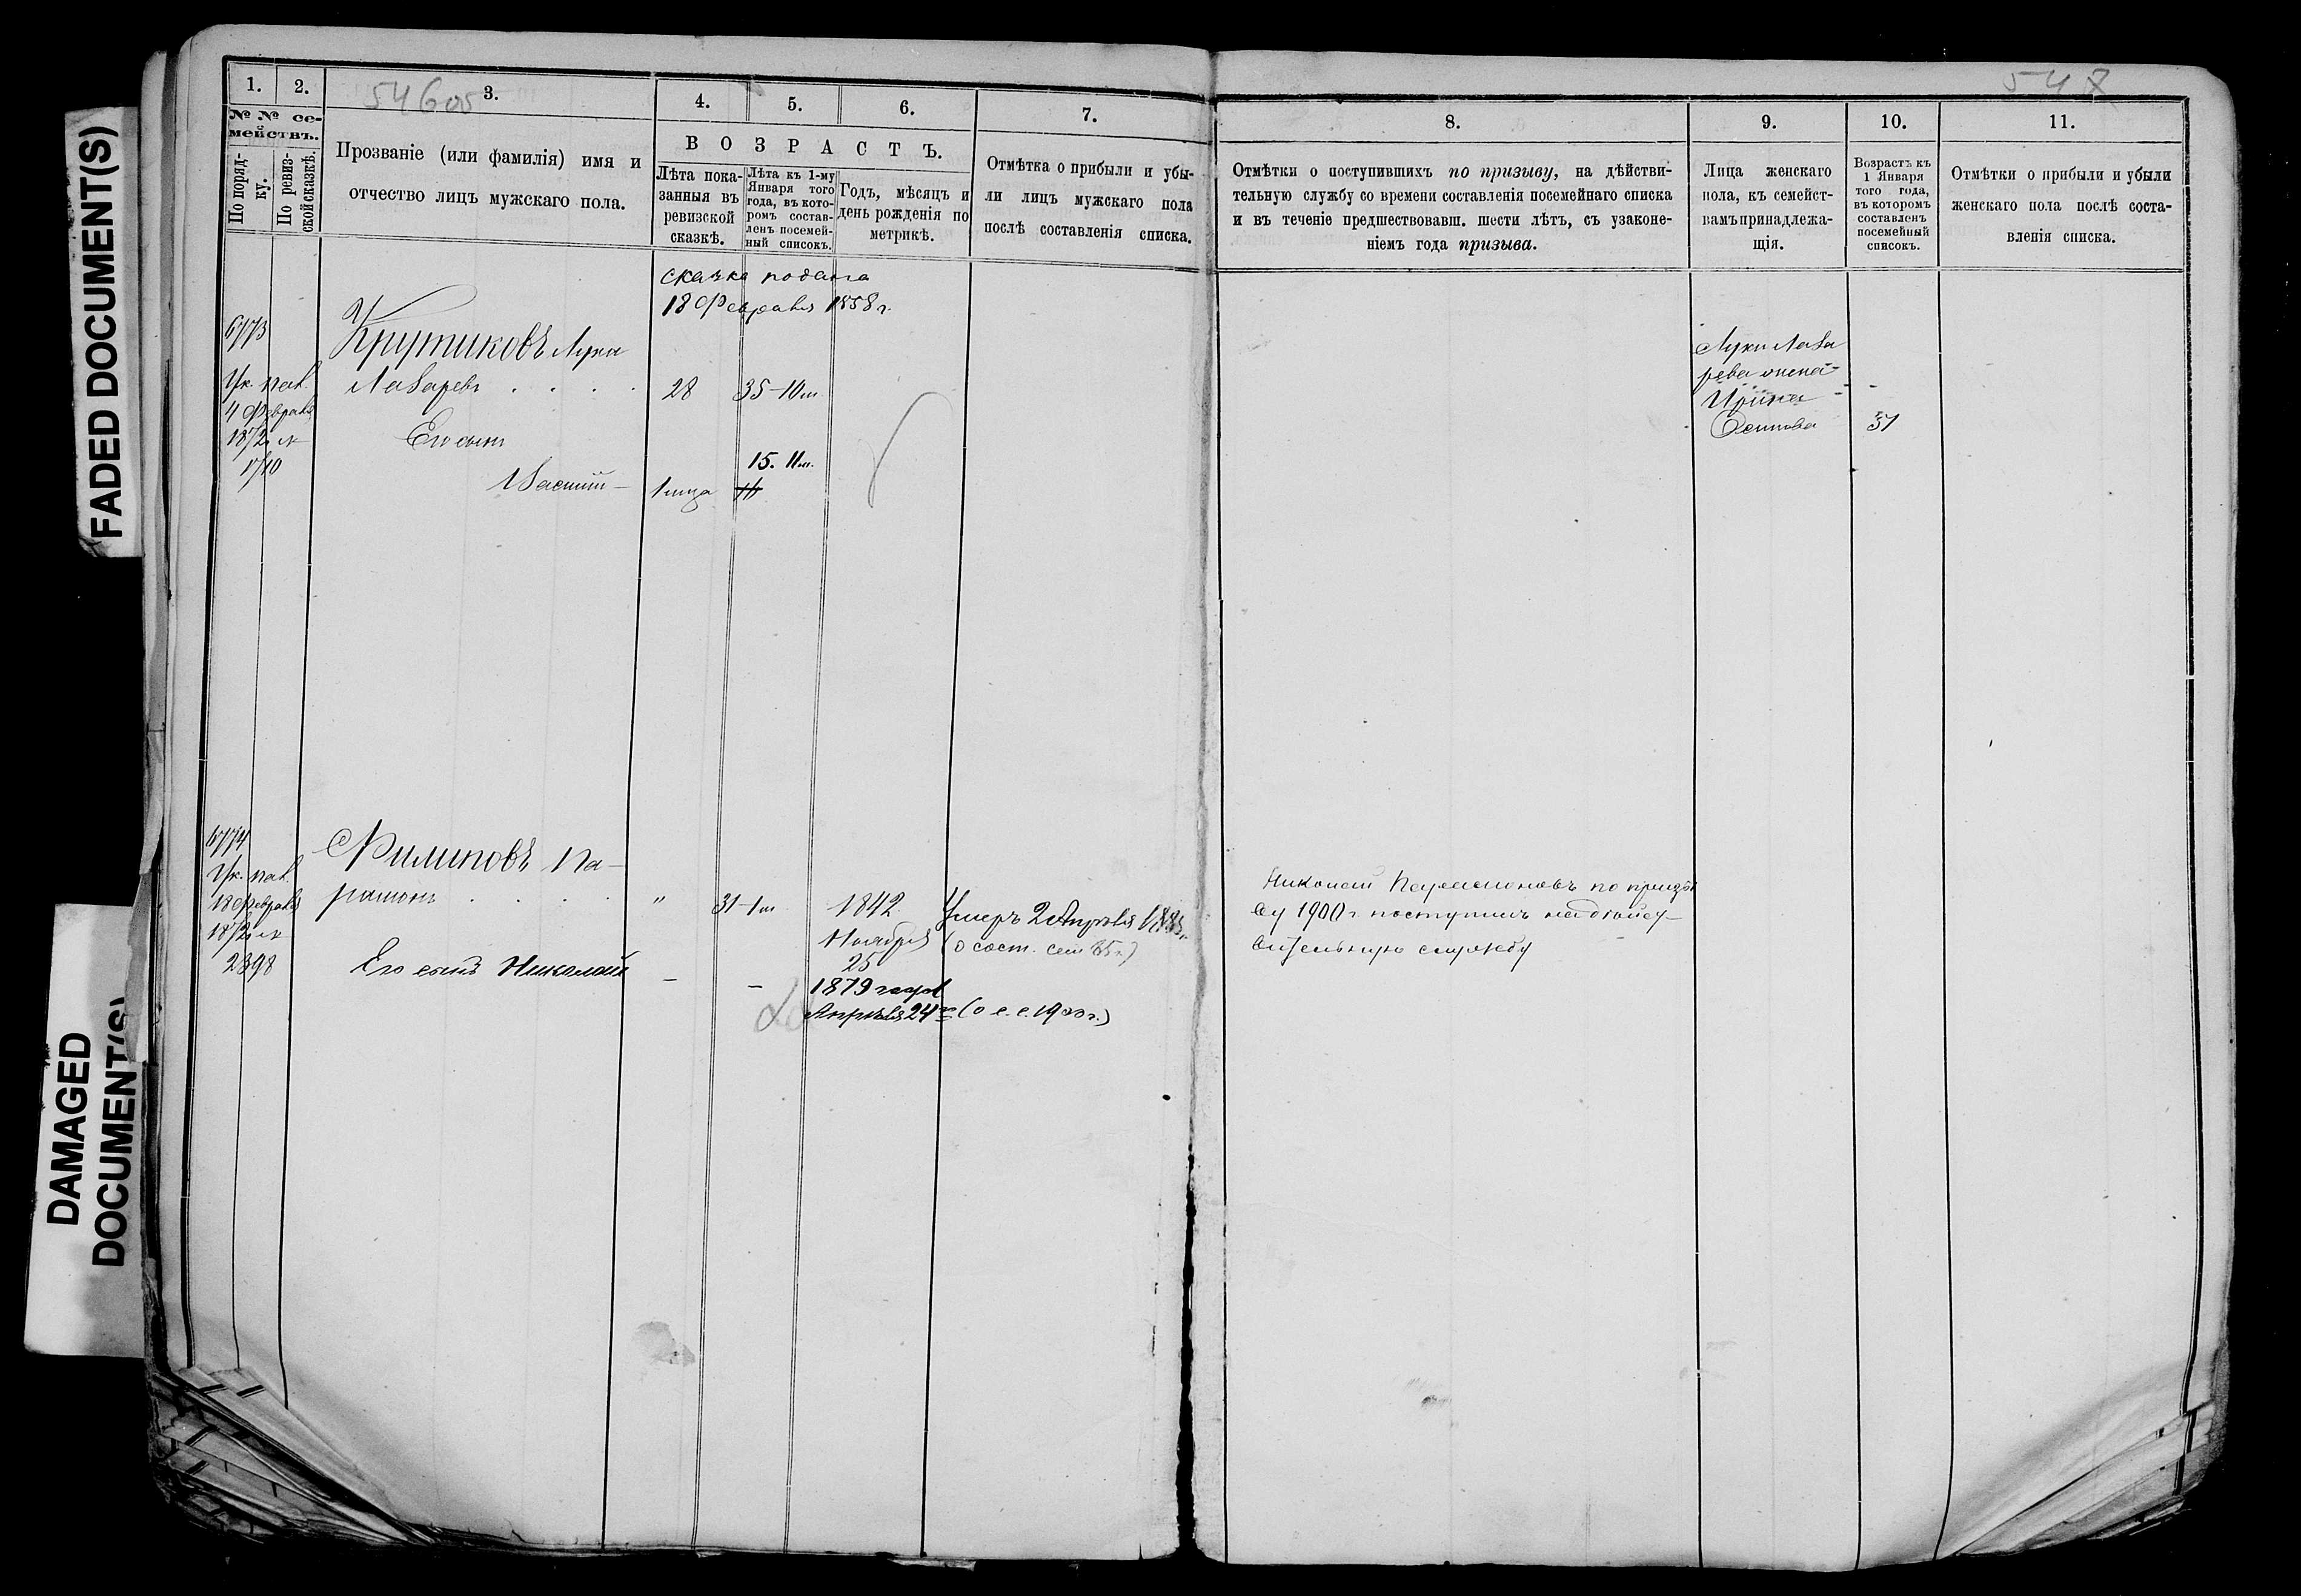 FADED DOCUMENT(S)
DAMAGED
DOCUMENT(S)
1.
2.
3.
4.
5.
6.
7.
8.
9.
10.
11.
547
№ № се-
мействъ.
По поряд-
ку.
По ревиз-
ской сказкѣ.
Прозваніе (или фамилія) имя и
отчество лицъ мужскаго пола.
ВОЗРАСТЪ.
Лѣта пока-
занныя въ
ревизской
сказкѣ.
Лѣта къ 1-му
Января того
года, въ кото-
ромъ состав-
ленъ посемей-
ный списокъ.
Годъ, мѣсяцъ и
день рожденія по
метрикѣ.
Отмѣтка о прибыли и убы-
ли лицъ мужскаго пола
послѣ составленія списка.
Отмѣтки о поступившихъ по призыву, на дѣйстви-
тельную службу со времени составленія посемейнаго списка
и въ теченіе предшествовавш. шести лѣтъ, съ узаконе-
ніемъ года призыва.
Лица женскаго
пола, къ семейст-
вамъ принадлежа-
щія.
Возрастъ къ
1 Января
того года,
въ которомъ
составленъ
посемейный
списокъ.
Отмѣтки о прибыли и убыли
женскаго пола послѣ соста-
вленія списка.
сказка подана
18 Февраля 1858 г.
6773
Ук. пал.
4 Февраля
1872 №
1710
Крутиковъ Лука
Лазаревъ 28 35-10м
Его сынъ
15. 11м.
Василій
Луки Лаза
рева жена
Ирина
Осипова 31
6774
Ук. пал.
18 Февраля
1872 №
2898
Филиповъ Па-
рамонъ " 31-1м 1842
Ноября
25
Умеръ 2 Апрѣля
(о сост. сем 85 г.)
Его сынъ Николай - - 1879 года
Апрѣля 24го (о с. с. 1900 г.)
Николай Парамоновъ по призы
ву 1900 г. поступилъ на дѣйст-
вительную службу